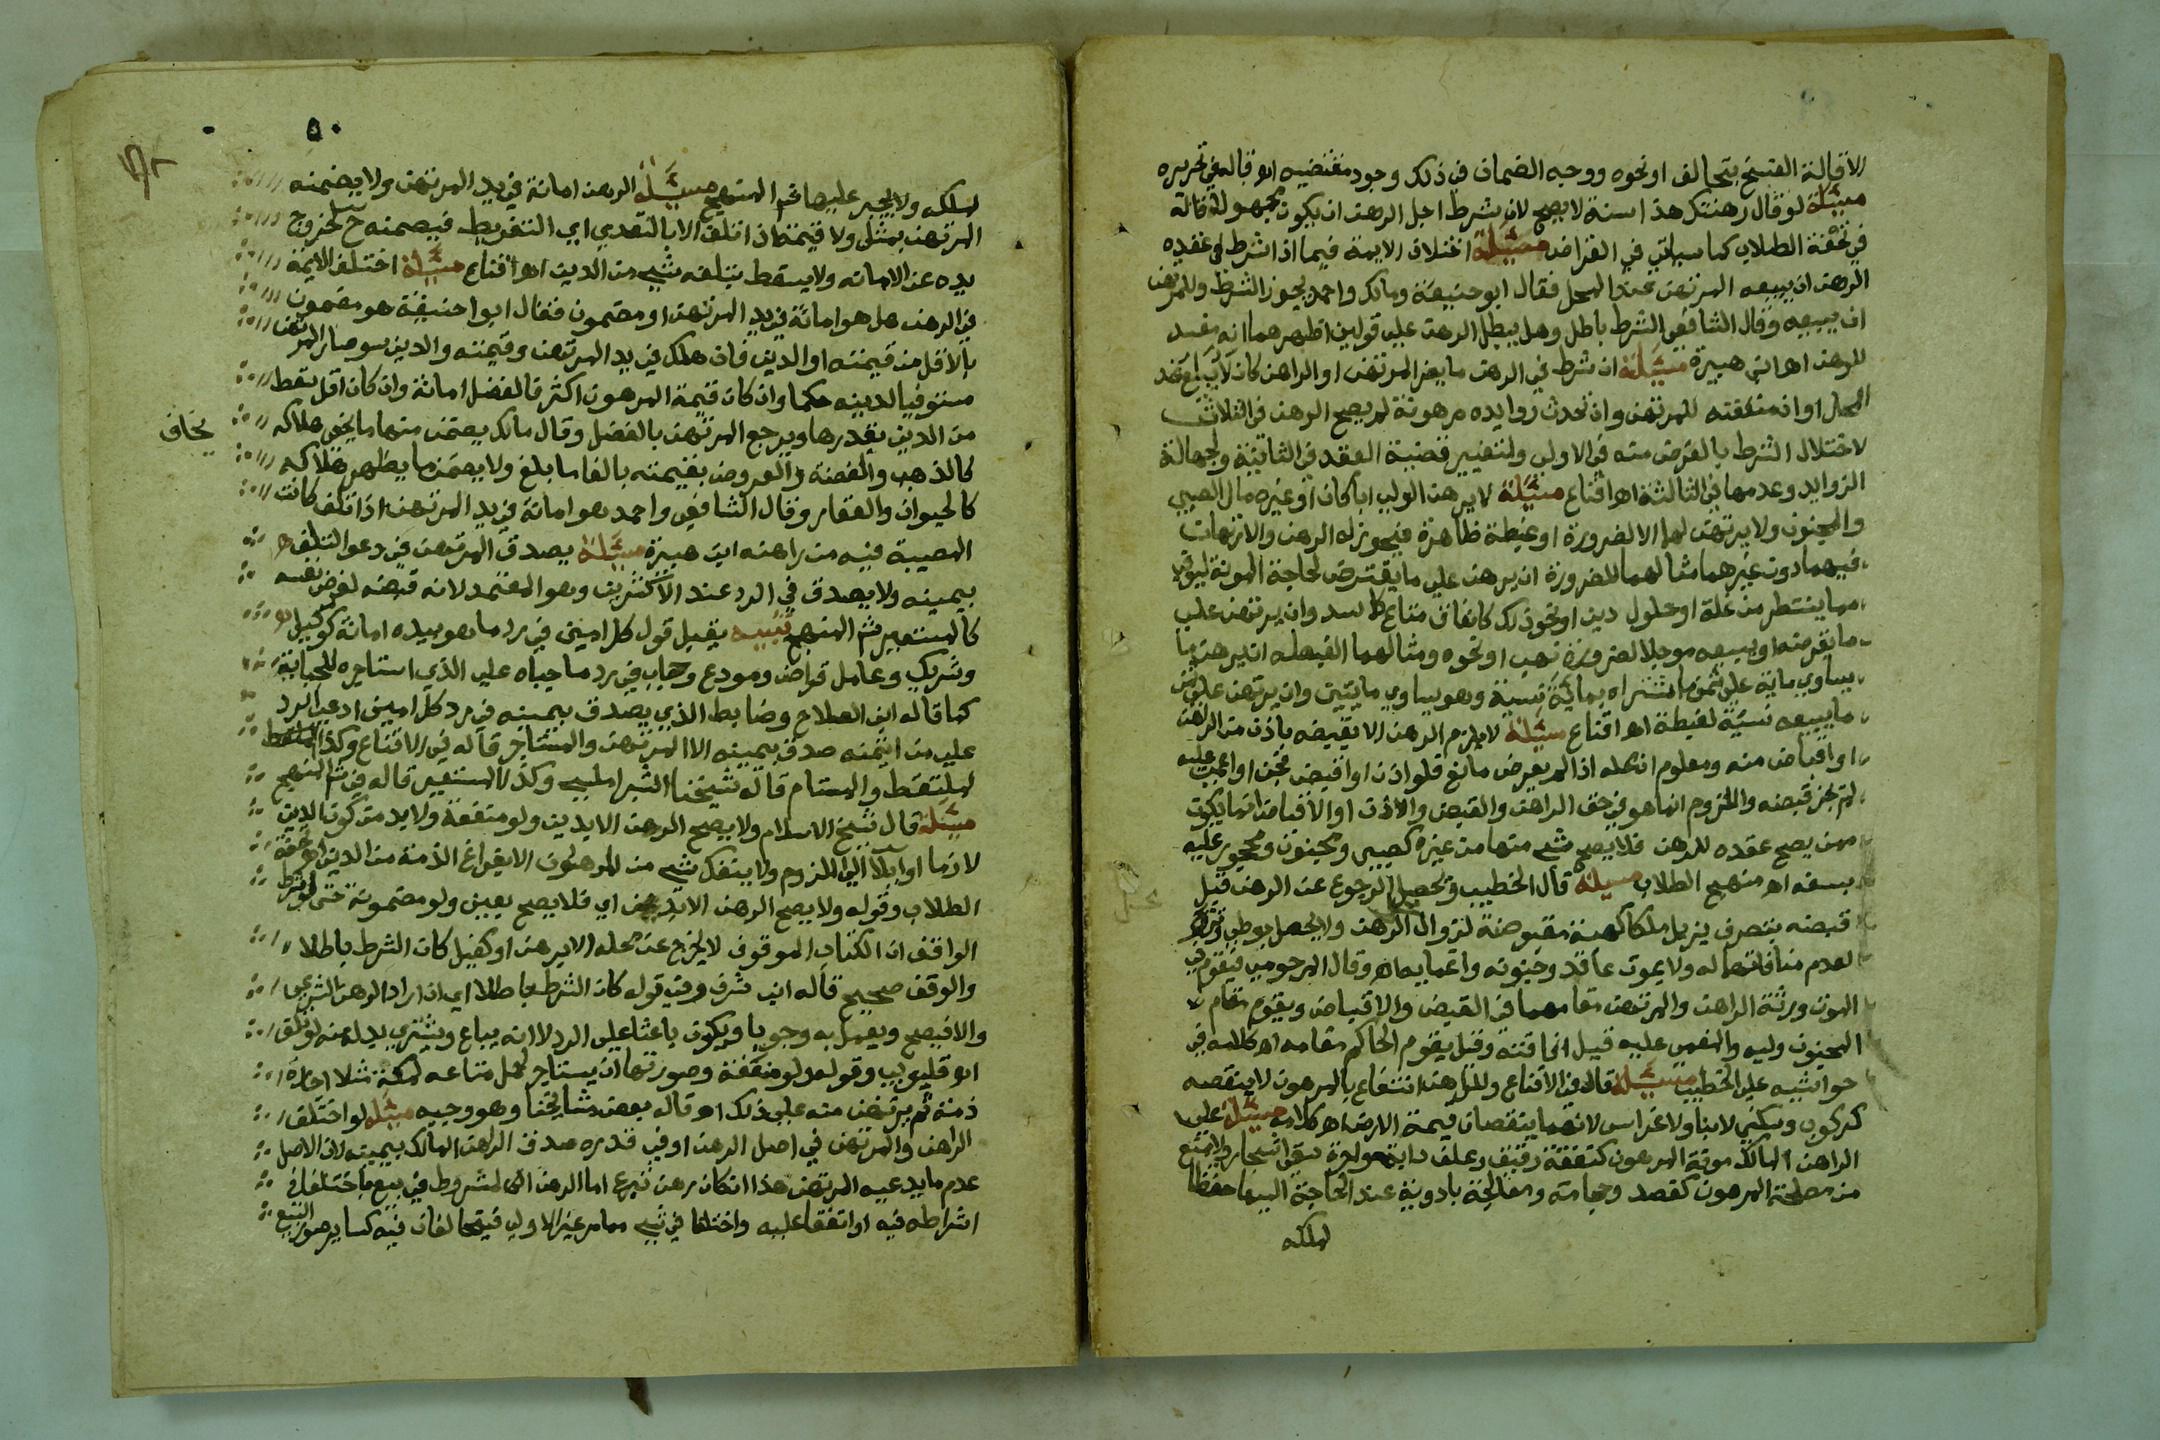 الاقالة الفسخ بتحالف او نحوه ووجه الضمان في ذلك وجود مقتضيه اهـ قاله في تحريره
مسئلة لو قال رهنتك هذا سنة لا يصح لان شرط اجل الرهن ان يكون مجهولا قاله
في تحفة الطلاب كما سياتي في القراض مسئلة اختلاف الايمة فيما اذا شرط في عقده
الرهن ان يبيعه المرتهن عند المحل فقال ابو حنيفة ومالك واحمد يجوز الشرط وللمرتهن
ان يبيعه وقال الشافعي الشرط باطل وهل يبطل الرهن على قولين اظهرهما انه مفسد
للرهن اهـ ابن هبيرة مسئلة ان شرط في الرهن ما يضر المرتهن او الراهن كان لا يباع عند
المحل او ان منفعته للمرتهن وان تحدث زوايده مرهونة لم يصح الرهن في الثلاث
لاختلال الشرط بالغرض منه في الاولى ولتغيير قضية العقد في الثانية ولجهالة
الزوايد وعدمها في الثالثة اهـ اقناع مسئلة لا يرهن الولي ابا كان او غيره مال الصبي
والمجنون ولا يرتهن لهما الا لضرورة او غبطة ظاهرة فيجوز له الرهن والارتهان
فيهما دون غيرهما مثالهما للضرورة ان يرهن على ما يقترض لحاجة المونة ليوفي
مما ينتظر من غلة او حلول دين او نحو ذلك كانفاق متاع كاسد وان يرتهن على
ما يقرضه او يبيعه موجلا لضرورة نهب او نحوه ومثالهما للغبطة ان يرهن ما
يساوي ماية على ثمن ما اشتراه بماية نسية وهو يساوي مايتين وان يرتهن على ثمن
ما يبيعه نسية لغبطة اهـ اقناع مسئلة لا يلزم الرهن الا بقبضه باذن من الراهن
او اقباض منه ومعلوم ان محله اذا لم يعرض مانع فلو اذن او اقبض فجن او اغمي عليه
لم يجز قبضه واللزوم انما هو في حق الراهن والقبض والاذن او الاقباض انما يكون
ممن يصح عقده للرهن فلا يصح شيء منها من غيره كصبي ومجنون ومحجور عليه
بسفه اهـ منهج الطلاب مسئلة قال الخطيب ويحصل الرجوع عن الرهن قبل
قبضه بتصرف يزيل ملكا كهبة مقبوضة لزوال الرهن ولا يحصل بوطي وتزويج
لعدم منافاتهما له ولا بموت عاقد وجنونه واغمايه اهـ وقال المرحومي فيقوم في
الموت ورثة الراهن والمرتهن مقامهما في القبض والاقباض ويقوم مقام
المجنون وليه والمغمى عليه قيل افاقته وقيل يقوم الحاكم مقامه اهـ كلامه في
حواشيه على الخطيب مسئلة قاله في الاقناع وللراهن انتفاع بالمرهون لا ينقصه
كركوب وسكنى لا بنا ولا غراس لانهما ينقصان قيمة الارض اهـ كلامه مسئلة على
الراهن المالك مونة المرهون كنفقة رقيق وعلف دابة واجرة سقي اشجار ولا يمنع
من مصلحة المرهون كفصد وحجامة ومعالجة بادوية عند الحاجة اليها حفظا
لملكه
٥٠
لملكه ولا يجبر عليها شرح المنهج مسئلة الرهن امانة في يد المرتهن ولا يضمنه
المرتهن بمثل ولا قيمة اذا تلف الا بالتعدي اي التفريط فيضمنه ح لخروج
يده عن الامانه ولا يسقط بتلفه شيء من الدين اهـ اقناع مسئلة اختلف الايمة
في الرهن هل هو امانة في يد المرتهن او مضمون فقال ابو احنيفة هو مضمون
بالاقل من قيمته او الدين فان هلك في يد المرتهن وقيمته والدين سو صار المرتهن
مستوفيا لدينه حكما وان كان قيمة المرهون اكثر فالفضل امانة وان كان اقل سقط
من الدين بقدرها ويرجع المرتهن بالفضل وقال مالك يضمن منها ما يخفى هلاكه
يخاف
كالذهب والفضة والعروض بقيمته بالغا ما بلغ ولا يضمن ما يظهر هلاكه
كالحيوان والعقار وقال الشافعي واحمد هو امانة في يد المرتهن اذا تلف كانت
المصيبة فيه من راهنه ابن هبيرة مسئلة يصدق المرتهن في دعوا التلف
بيمينه ولا يصدق في الرد عند الاكثرين وهو المعتمد لانه قبضه لغرض نفسه
كالمستعير شم المنهج تنبيه يقبل قول كل امين في رد ما هو بيده امانة كوكيل
وشريك وعامل قراض ومودع وجاب في رد ما جباه على الذي استاجره للجباية
كما قاله ابن الصلاح وضابط الذي يصدق بيمينه في رد كل امين ادعى الرد
على من ائتمنه صدق بيمينه الا المرتهن والمستاجر قاله في الاقناع وكذا
الملتقط والمستام قاله شيخنا الشبراملسي وكذا المستعير قاله في شم المنهج
مسئلة قال شيخ الاسلام ولا يصح الرهن الا بدين ولو منفعة ولا بد من كون الدين
لازما او آيلا الى اللزوم ولا ينفك شيء من المرهون الا بفراغ الذمة من الدين اهـ تحفة
الطلاب وقوله ولا يصح الرهن الا بدين اي فلا يصح بعين ولو مضمونة حتى لو شرط
الواقف ان الكتاب الموقوف لا يخرج عن محله الا برهن او كفيل كان الشرط باطلا
والوقف صحيح قاله ابن شرف وفيه قوله كان الشرط باطلا اي ان اراد الرهن الشرعي
والا فيصح ويعمل به وجوبا ويكون باعثا على الرد لا انه يباع ويشترى بدله منه لو تلف
اهـ قليوبي وقوله ولو منفعة وصورتها ان يستاجر لحمل متاعه لمكة مثلا اجارة
ذمة ثم يرتهن منه على ذلك اهـ قاله بعض مشايخنا وهو وجيه مسئلة لو اختلف
الراهن والمرتهن في اصل الرهن او في قدره صدق الراهن المالك بيمينه لان الاصل
عدم ما يدعيه المرتهن هذا ان كان رهن تبرع اما الرهن المشروط في بيع باختلفا في
اشراطه فيه او اتفقا عليه واختلفا في شيء مما مر غير الاولى فيتحالفان فيه كساير صور البيع